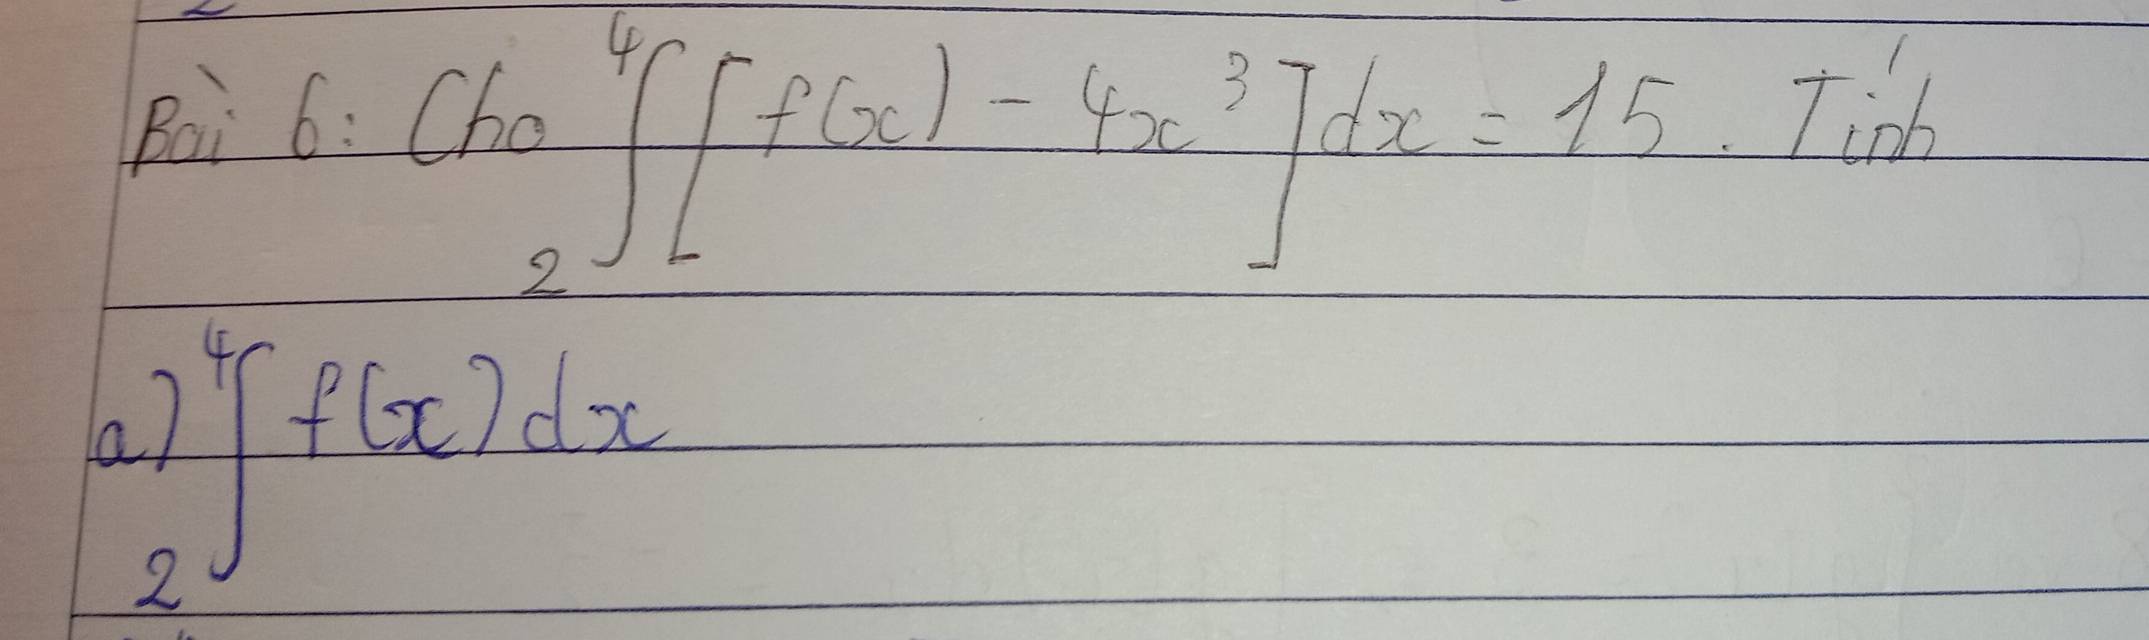 Bài 6: Cho ₂⁴∫[f(x) - 4x³]dx = 15. Tính
a) ₂⁴∫f(x)dx